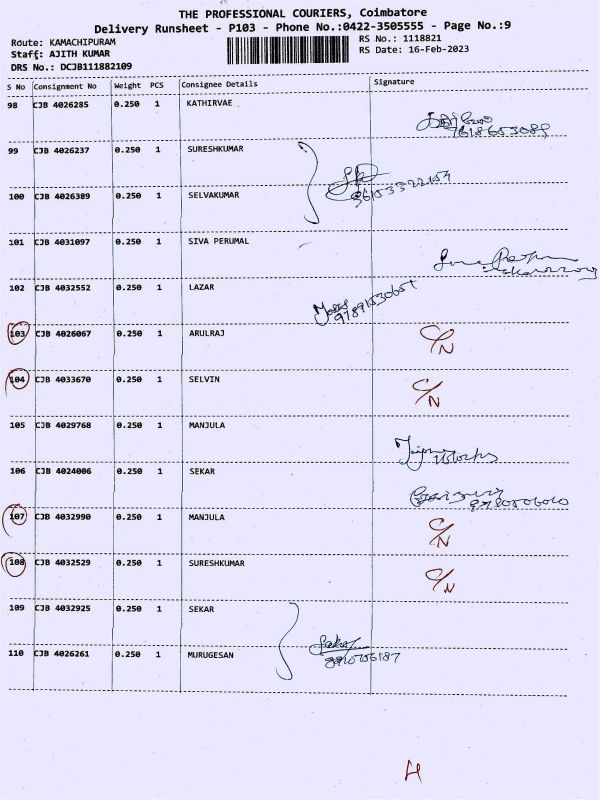 THE PROFESSIONAL COURIERS, Coimbatore
Delivery Runsheet - P103 - Phone No.:0422-3505555 - Page No.:9
Route: KAMACHIPURAM RS No.: 1118821
Staff: AJITH KUMAR RS Date: 16-Feb-2023
DRS No.: DCJB111882109
S No Consignment No Weight PCS Consignee Details Signature
98 CJB 4026285 0.250 1 KATHIRVAE
99 CJB 4026237 0.250 1 SURESHKUMAR
100 CJB 4026389 0.250 1 SELVAKUMAR
101 CJB 4031097 0.250 1 SIVA PERUMAL
102 CJB 4032552 0.250 1 LAZAR
103 CJB 4026067 0.250 1 ARULRAJ C/N
104 CJB 4033670 0.250 1 SELVIN C/N
105 CJB 4029768 0.250 1 MANJULA
106 CJB 4024006 0.250 1 SEKAR
107 CJB 4032990 0.250 1 MANJULA C/N
108 CJB 4032529 0.250 1 SURESHKUMAR C/N
109 CJB 4032925 0.250 1 SEKAR
110 CJB 4026261 0.250 1 MURUGESAN